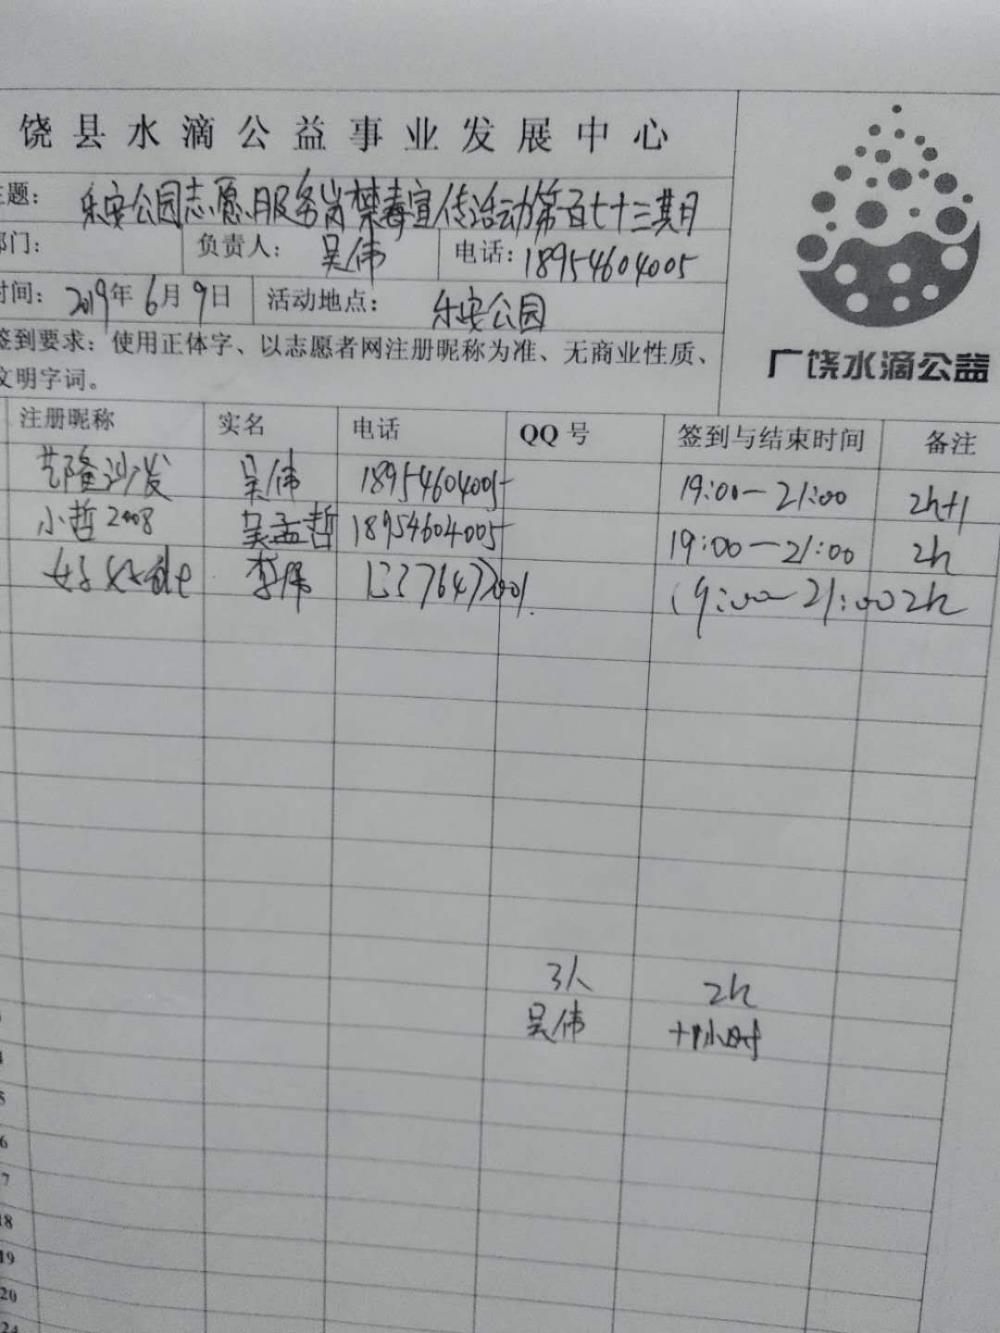 饶县水滴公益事业发展中心
主题: 乐安公园志愿服务岗禁毒宣传活动第百七十三期
部门: 负责人: 吴伟 电话: 18954604005
时间: 2019年6月9日 活动地点: 乐安公园
签到要求: 使用正体字、以志愿者网注册昵称为准、无商业性质、
文明字词。
广饶水滴公益
注册昵称 实名 电话 QQ号 签到与结束时间 备注
艺隆沙发 吴伟 18954604005 19:00-21:00 2h+1
小哲2008 吴孟哲 18954604005 19:00-21:00 2h
李伟 19:00-21:00 2h
3人 2h
吴伟 +1小时
4
5
6
7
18
19
20